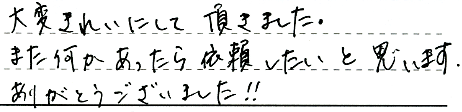 大変きれいにして頂きました。
また何かあったら依頼したいと思います.
ありがとうございました!!